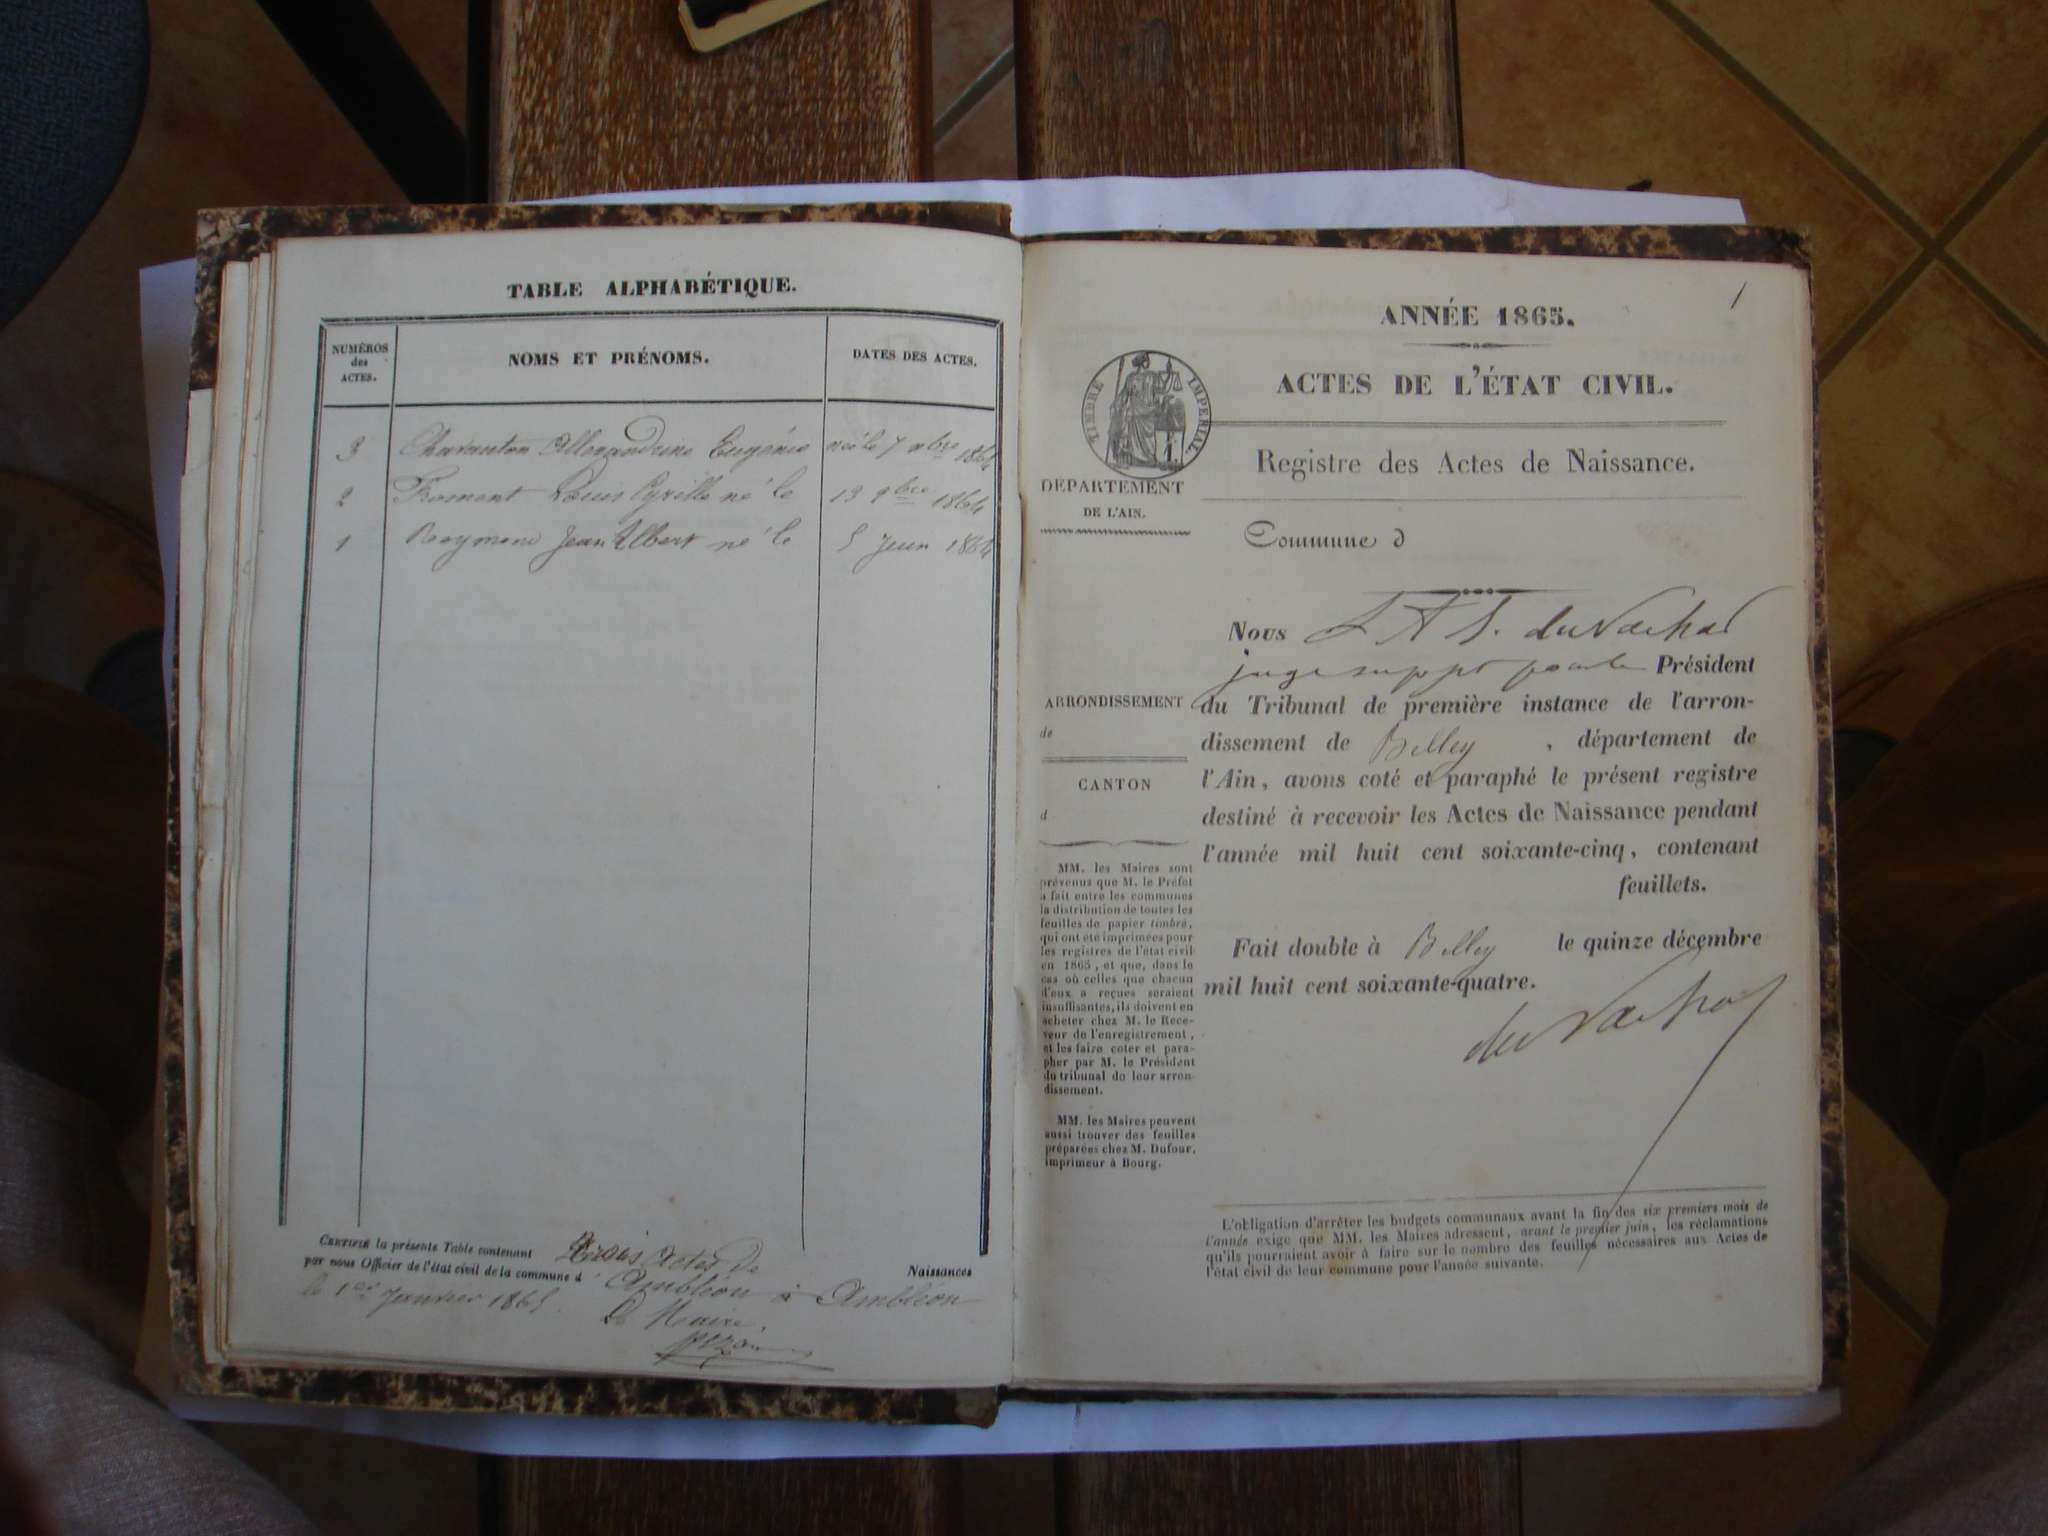 TABLE ALPHABÉTIQUE.
NUMÉROS
des
ACTES.
NOMS ET PRÉNOMS.
DATES DES ACTES.
3 Charanton Allexandrine Eugénie née le 7 9bre 1864
2 Froment Louis Cyrille né le 13 9bre 1864
1 Reymond Jean Albert né le 5 Juin 1864
CERTIFIÉ la présente Table contenant trois actes de Naissances
par nous Officier de l'état civil de la commune d'Ambléon à Ambléon
le 1er Janvier 1865
Le Maire.
1
ANNÉE 1865.
ACTES DE L'ÉTAT CIVIL.
TIMBRE IMPERIAL
Registre des Actes de Naissance.
DÉPARTEMENT
DE L'AIN.
Commune d
ARRONDISSEMENT
de
CANTON
d
MM. les Maires sont
prévenus que M. le Préfet
a fait entre les communes
la distribution de toutes les
feuilles de papier timbré,
qui ont été imprimées pour
les registres de l'état civil
en 1865, et que, dans le
cas où celles que chacun
d'eux a reçues seraient
insuffisantes, ils doivent en
acheter chez M. le Rece-
veur de l'enregistrement,
et les faire coter et para-
pher par M. le Président
du tribunal de leur arron-
dissement.
MM. les Maires peuvent
aussi trouver des feuilles
préparées chez M. Dufour,
imprimeur à Bourg.
Nous L A S. du Vachat
juge suppt pour le Président
du Tribunal de première instance de l'arron-
dissement de Belley, département de
l'Ain, avons coté et paraphé le présent registre
destiné à recevoir les Actes de Naissance pendant
l'année mil huit cent soixante-cinq, contenant
feuillets.
Fait double à Belley le quinze décembre
mil huit cent soixante-quatre.
du Vachat
L'obligation d'arrêter les budgets communaux avant la fin des six premiers mois de
l'année exige que MM. les Maires adressent, avant le premier juin, les réclamations
qu'ils pourraient avoir à faire sur le nombre des feuilles nécessaires aux Actes de
l'état civil de leur commune pour l'année suivante.